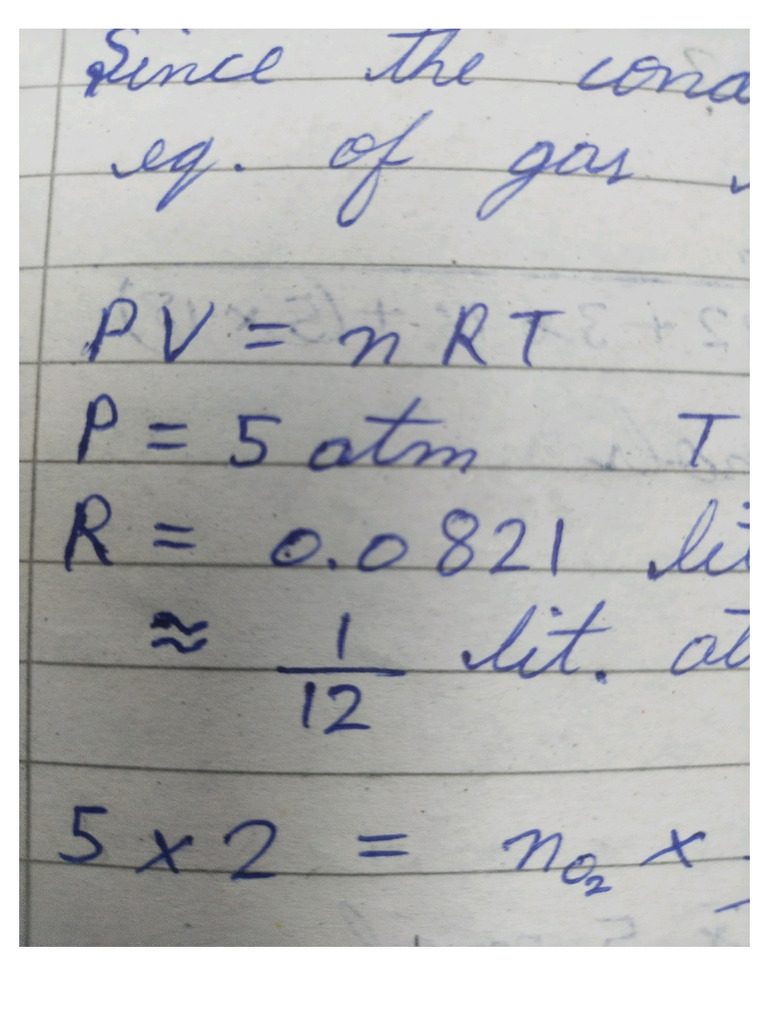 Since the
eq. of gas
PV = n RT
P = 5 atm T
R = 0.0821
≈ 1/12 lit.
5 × 2 = nO₂ ×